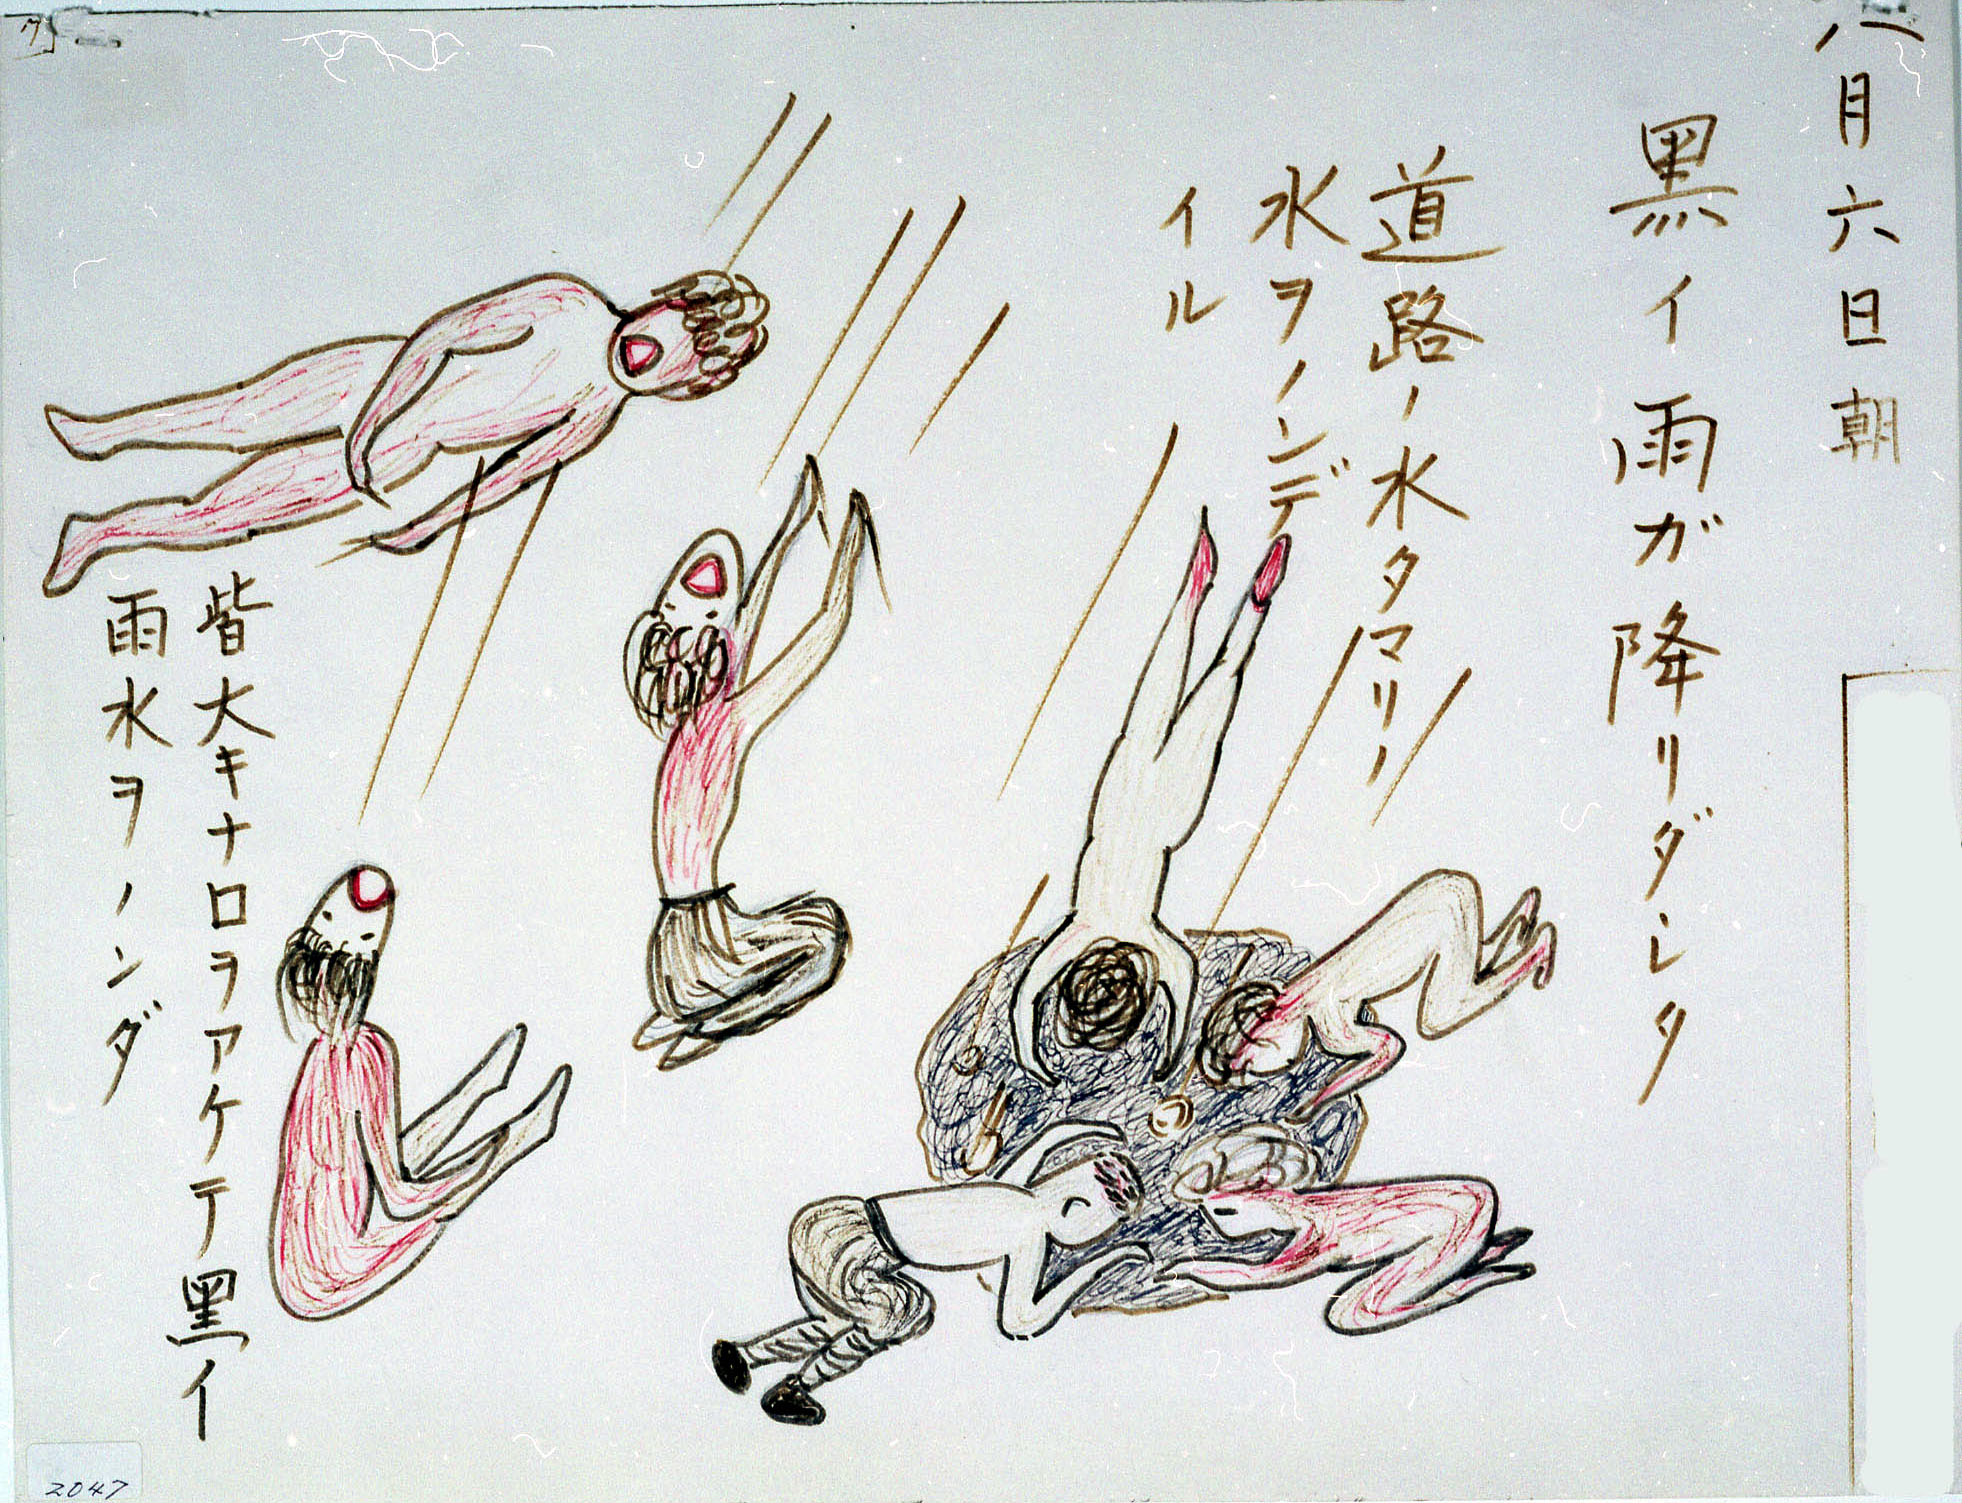 八月六日朝
黒イ雨ガ降リダシタ
道路ノ水タマリノ
水ヲノンデ
イル
皆大キナ口ヲアケテ黒イ
雨水ヲノンダ
2047